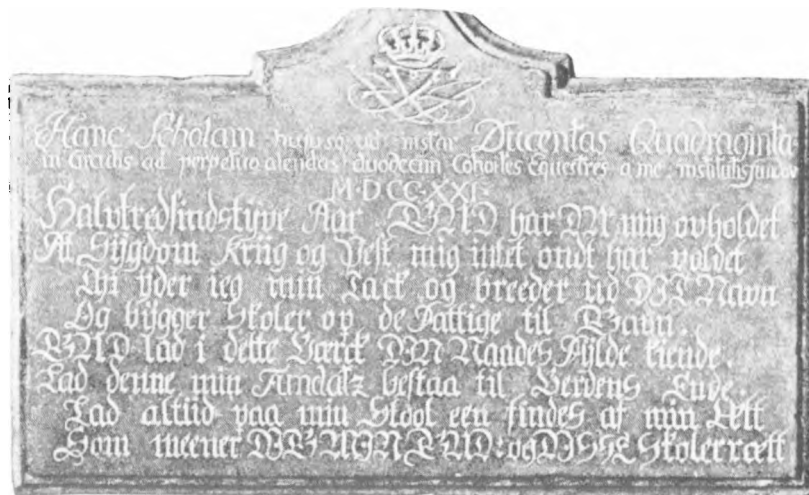 Hanc Scholam hujusq; ad instar Ducentas Quadraginta
in Circulis ad perpetuo alendas duodecim Cohortes Equestres a me institutis fundavi
M·DCC·XXI·
Halvtredsindstÿve Aar GUD har DU mig opholdet
At Sÿgdom Kriig og Pest mig intet ondt har voldet
Thi ÿder ieg min Tack og breeder ud DIT Nawn
Og bÿgger Skoler op de Fattige til Gavn.
GUD lad i dette Værck DIN Naades Fÿlde kiende
Lad denne min Fundatz bestaa til Verdens Ende
Lad altiid paa min Skool een findes af min Ætt
Som meener DIG MIN GUD: og DISSE Skoler rætt